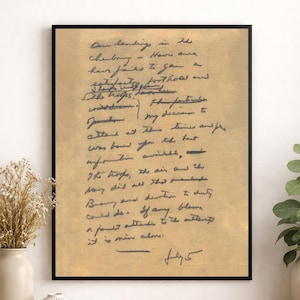 Our landings in the
Cherbourg - Havre area
have failed to gain a
satisfactory foothold and
I have withdrawn
the troops
This particular
operation my decision to
attack at this time and place
was based upon the best
information available.
The troops, the air and the
Navy did all that
Bravery and devotion to duty
could do. If any blame
or fault attaches to the attempt
it is mine alone.
July 5